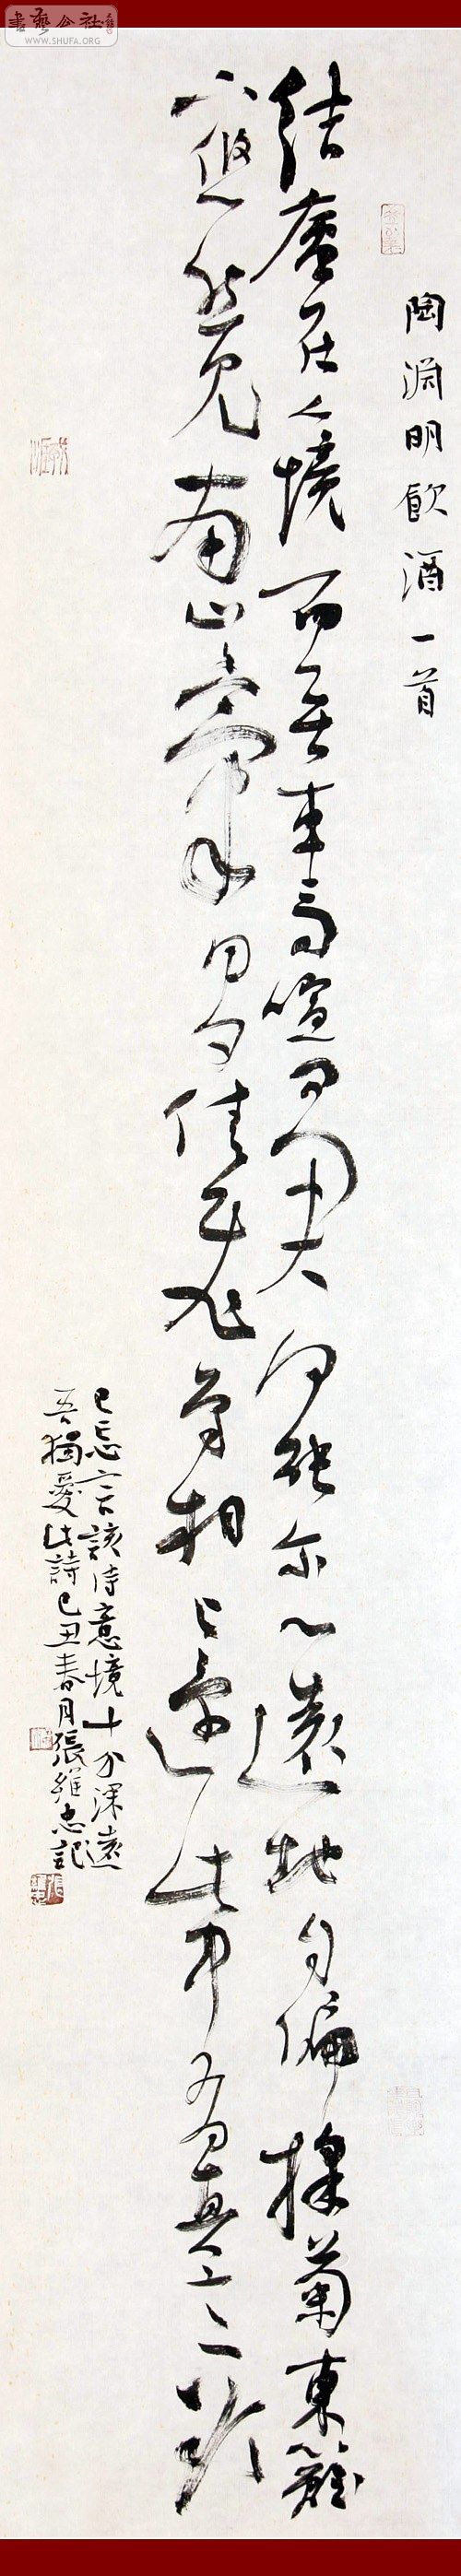 書藝公社
WWW.SHUFA.ORG
陶淵明飲酒一首
結廬在人境而無車馬喧問君何能尔心遠地自偏採菊東籬
下悠然見南山山氣日夕佳飛鳥相与還此中有真意欲辨
已忘言該詩意境十分深遠
吾獨愛此詩己丑春月張維忠記